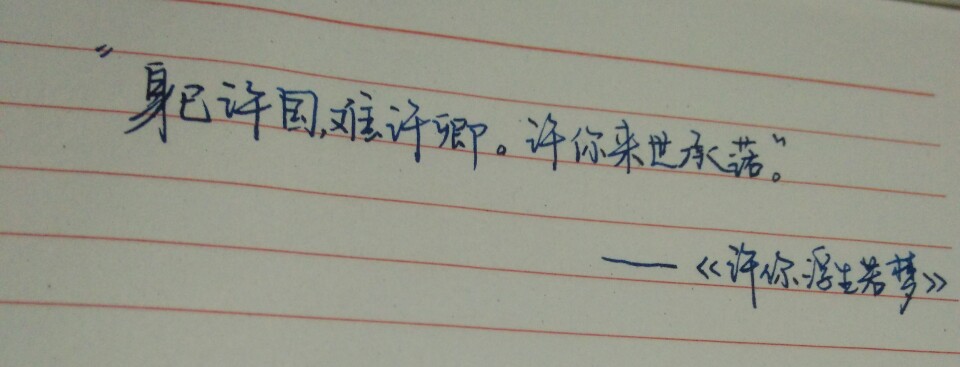 "身已许国,难许卿。许你来世承诺"。
——《许你浮生若梦》